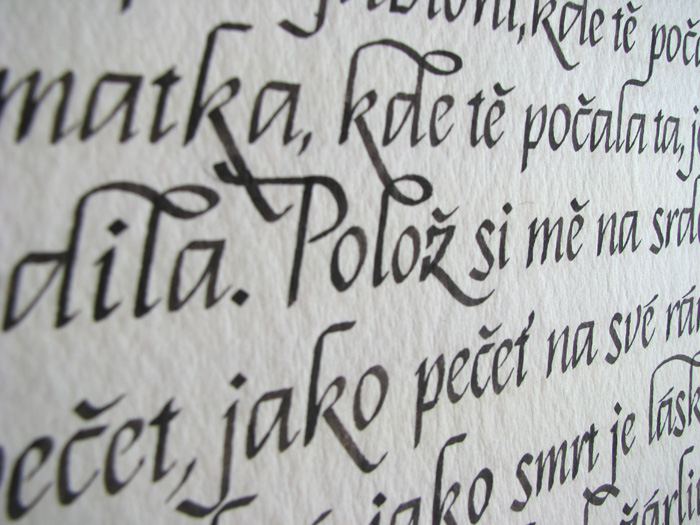 jabloní, kde tě poč
matka, kde tě počala ta, j
dila. Polož si mě na srd
pečet, jako pečeť na své rám
jako smrt je lásk
žárli